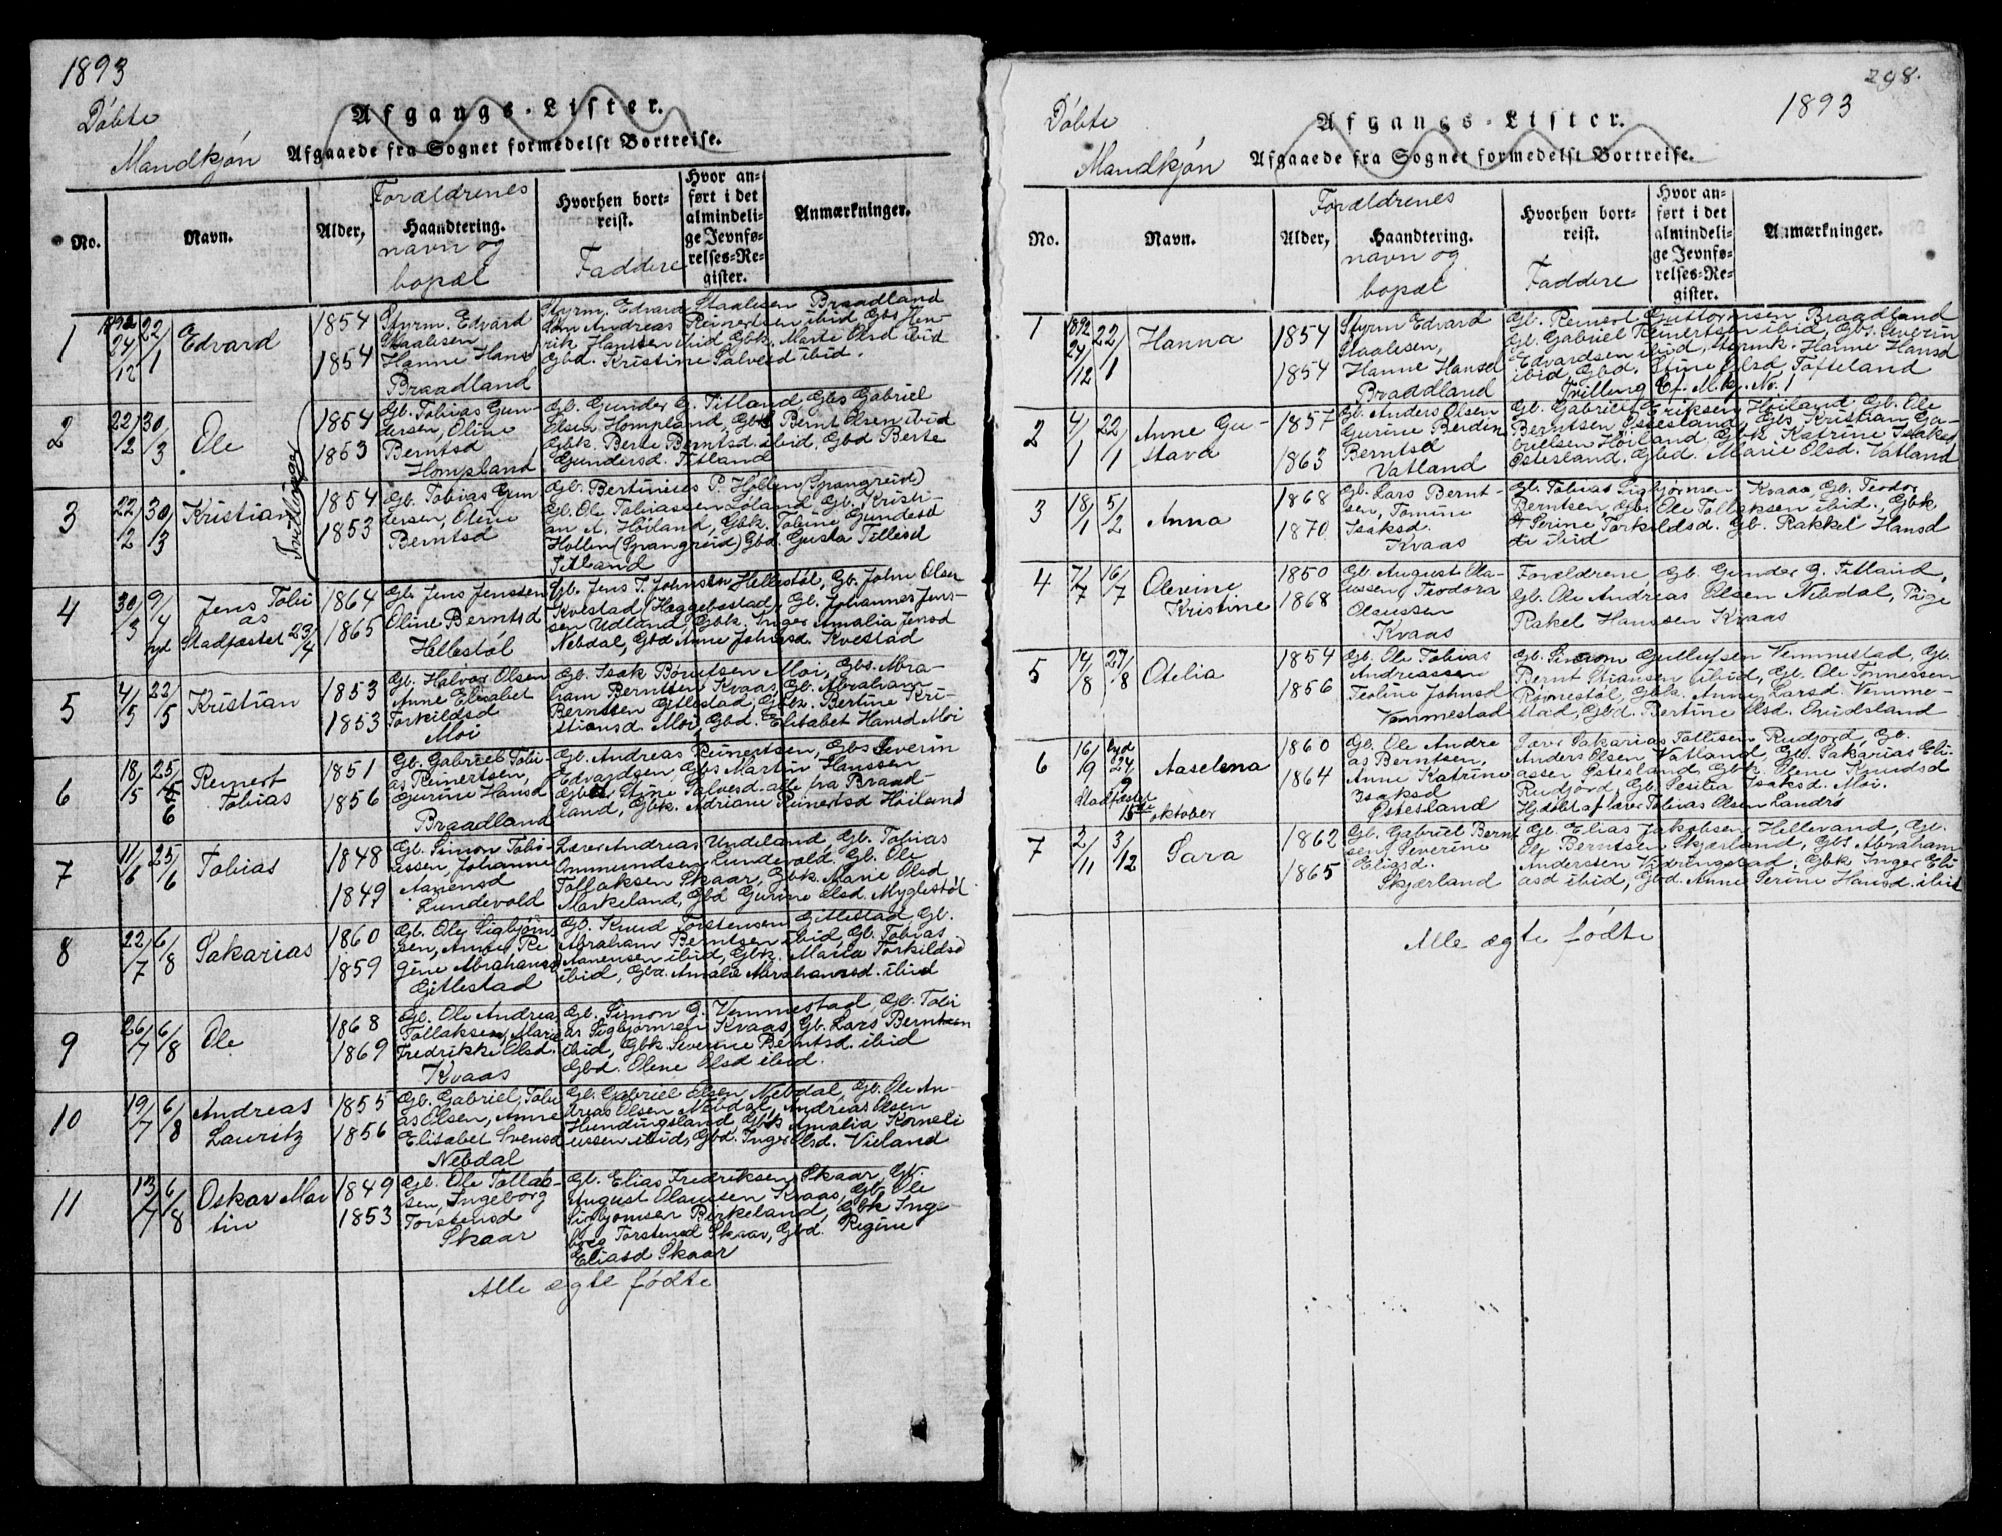 1893
Döbte
Mandkjön
Afgangs-Lister.
Afgaaede fra Sognet formedelst Bortreise.
No.
Navn.
Alder,
Forældrenes
Haandtering.
navn og
bopæl
Hvorhen bort-
reist.
Faddere
Hvor an-
ført i det
almindeli-
ge Jevnfø-
relses-Re-
gister.
Anmærkninger.
1
1892
24/12
22/1
Edvard
1854
1854
Styrm. Edvard
Staalesen
Hanne Hans
Braadland
Styrm. Edvard Staalesen Braadland
Andreas Reinertsen ibid Gbs Hen-
rik Hanssen ibid Gbk. Marte Olsd ibid
Gbd. Kristine Salvesd ibid.
2
22/2
30/3
Ole
Tvillinger
1854
1853
Gb. Tobias Gun-
dersen, Oline
Berntsd
Hompland
Gb. Gunder G. Titland, Gbs Gabriel
Olsen Hompland, Gbs Bernt Olsen ibid
Gbk. Berte Berntsd. ibid, Gbd Berte
Gundersd. Titland
3
22/2
30/3
Kristian
1854
1853
Gb. Tobias Gun
dersen, Oline
Berntsd
Gb. Bertinius P. Hollen (Spangreid)
Gb. Ole Tobiassen Löland, Gb. Kristi-
an A. Höiland, Gbk. Tobine Gundersd
Hollen (Spangreid) Gbd. Gusta Tillesd
Titland
4
30/3
9/4
hjd
Jens Tobi
as
Stadfæstet 23/4
1864
1865
Gb. Jens Jenssen
Oline Berntsd
Hellestöl
Gb. Jens T. Johnsen Hellestöl, Gb. John Olsen
Kvestad, Hæggebostad, Gb. Johannes Jens-
sen Udland, Gbk. Inger Amalia Jensd
Nebdal, Gbd Anne Johnsd. Kvestad
5
4/5
22/5
Kristian
1853
1853
Gb. Halvor Olsen
Anne Elisabet
Torkildsd
Moi
Gb. Isak Berntsen Moi, Gbs. Abra-
ham Berntsen Kvaas, Gb. Abraham
Berntsen Gitlestad, Gbk. Bertine Kri-
stiansd. Moi, Gbd. Elisabet Hansd Moi
6
18/5
25/6
Reinert
Tobias
1851
1856
Gb. Gabriel Tobi
as Reinertsen,
Gurine Hansd
Braadland
Gb. Andreas Reinertsen, Gbs Severin
Edvardsen, Gbs Martin Hanssen
Gbd. Stine Salvesd. alle fra Braad-
land, Gbk. Adriane Reinertsd Höiland
7
11/6
25/6
Tobias
1848
1849
Gb. Simon Tobi-
assen Johanne
Aanensd
Lundevold
Lærer Andreas Undeland, Gb. Tobias
Ommundsen Lundevold, Gb. Ole
Tollaksen Skaar, Gbk. Marie Olsd
Markeland, Gbd Gurine Olsd. Myglestöl
8
22/7
6/8
Sakarias
1860
1859
Gb. Ole Sigbjörn-
sen, Anne Re
gine Abrahamsd
Gitlestad
Gb. Knud Torstensen Gitlestad, Gb.
Abraham Berntsen ibid, Gb. Tobias
Aanensen ibid, Gbk. Marta Torkildsd
ibid, Gbd. Amalie Abrahamsd. ibid
9
26/7
6/8
Ole
1868
1869
Gb. Ole Andreas
Tollaksen, Marie
Fredrikke Olsd.
Kvaas
Gb. Simon G. Vemmestad, Gb. Tobi
as Sigbjörnsen Kvaas, Gb. Lars Berntsen
ibid, Gbk. Severine Berntsd. ibid
Gbd. Olene Olsd ibid.
10
19/7
6/8
Andreas
Lauritz
1855
1856
Gb. Gabriel Tobi
as Olsen, Anne
Elisabet Svensd
Nebdal
Gb. Gabriel Olsen Nebdal, Gb. Ole An-
dreas Olsen Nebdal, Andreas Olsen
Hundingsland, Gbk Amalia Korneli
ussen ibid, Gbd. Inger Olsd. Vieland
11
13/7
6/8
Oskar Mar
tin
1849
1853
Gb. Ole Tollak-
sen, Ingeborg
Torstensd
Skaar
Gb. Elias Fredriksen Skaar, Gb.
August Olaussen Kvaas, Gb. Ole
Sigbjörnsen Birkeland, Gbk Inge-
borg Torstensd Skaar, Gbd. Regine
Eliasd Skaar
Alle ægte födte
298.
1893
Döbte
Mandkjön
Afgangs-Lister.
Afgaaede fra Sognet formedelst Bortreise.
No.
Navn.
Alder,
Forældrenes
Haandtering.
navn og
bopæl
Hvorhen bort-
reist.
Faddere
Hvor an-
ført i det
almindeli-
ge Jevnfø-
relses-Re-
gister.
Anmærkninger.
1
1892
24/12
22/1
Hanna
1854
1854
Styrm Edvard
Staalesen,
Hanne Hansd
Braadland
Gb. Reinert Guttormsen Braadland
Gb. Gabriel Reinertsen ibid, Gbs. Severin
Edvardsen ibid, Styrmk. Hanne Hansd
ibid, Gbd. Stine Olsd. Tofteland
Tvilling Cf. M.kj. No. 1
2
4/1
22/1
Anne Gu-
stava
1857
1863
Gb. Anders Olsen
Gurine Berdin
Berntsd
Vatland
Gb. Gabriel Eriksen Höiland Gb. Ole
Berntsen Östesland, Gbs Kristian Ga-
brielsen Höiland, Gbk Katrine Isaksd
Östesland, Gbd. Marie Olsd. Vatland
3
18/1
5/2
Anna
1868
1870
Gb. Lars Bernt-
sen, Tomine
Isaksd.
Kvaas
Gb. Tobias Sigbjörnsen Kvaas, Gb. Teodor
Berntsen, Gb. Ole Tollaksen ibid., Gbk
Serine Torkildsd. Gb. Rakkel Hansd
ibid
4
7/7
16/7
Olevine
Kristine
1850
1868
Gb. August Ola-
ussen, Teodora
Olaussen
Kvaas
Forældrene, Gb. Gunder G. Titland,
Gb. Ole Andreas Olsen Nebdal, Pige
Rakel Hanssen Kvaas
5
14/8
27/8
Otelia
1854
1856
Gb. Ole Tobias
Andreassen
Teoline Johnsd
Vemmestad
Gb. Simon Gulleifsen Vemmestad, Gb.
Bernt Stiansen ibid, Gb. Ole Tönnessen
Römestöl, Gbk. Anne Larsd. Vemme-
stad, Gbd. Bertine Olsd. Ovidsland
6
16/9
hjd
24/9
Stadfæstet
15de oktober
Aaselena
1860
1864
Gb. Ole Andre
as Berntsen,
Anne Katrine
Isaksd
Östesland
Lærer Sakarias Tollisen Rudjord, Gb.
Anders Olsen Vatland, Gb. Sakarias Eli-
assen Östesland, Gbk. Olene Knudsd
Rudjord, Gb. Sesilia Isaksd. Moi.
Hjdöbt af lærer Tobias Olsen Landrö
7
2/11
3/12
Sara
1862
1865
Gb. Gabriel Bernt
sen, Severine
Eliasd.
Skjærland
Gb. Elias Jakobsen Hellevand, Gb.
Ole Berntsen Skjærland, Gbs Abraham
Andersen Vidringstad, Gbk Inger Eli-
asd ibid, Gbd. Anne Serine Hansd. ibid
Alle ægte födte